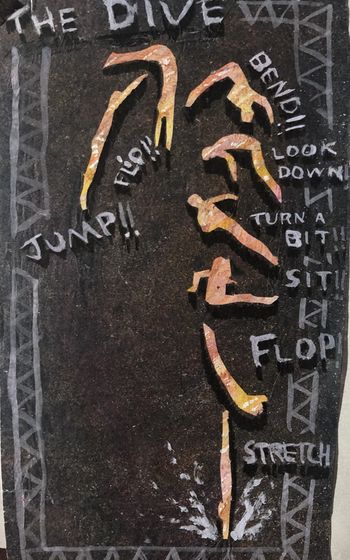 THE DIVE
JUMP!!
FLIP!!
BEND!!
LOOK
DOWN
TURN A
BIT!!
SIT!!
FLOP
STRETCH